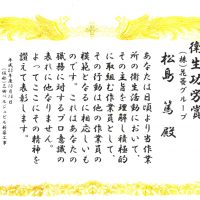 衛生功労賞
(株)花菱グループ
松島 篤 殿
あなたは日頃より当作業
所の衛生活動において、
その主旨を理解し積極的
に取組む作業員として
その行動は他の作業員の
模範となるに相応しいも
のです。これはあなたの
職務に対するプロ意識の
表れに他なりません。
よってここにその精神を
讃えて表彰します。